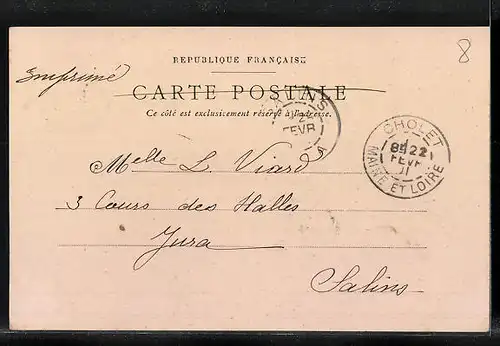 8
REPUBLIQUE FRANÇAISE
Imprimé
CARTE POSTALE
Ce côté est exclusivement réservé à l'adresse.
FEVR
CHOLET
22
FEVR
01
MAINE ET LOIRE
Melle L. Viard
3 Cours des Halles
Jura
Salins